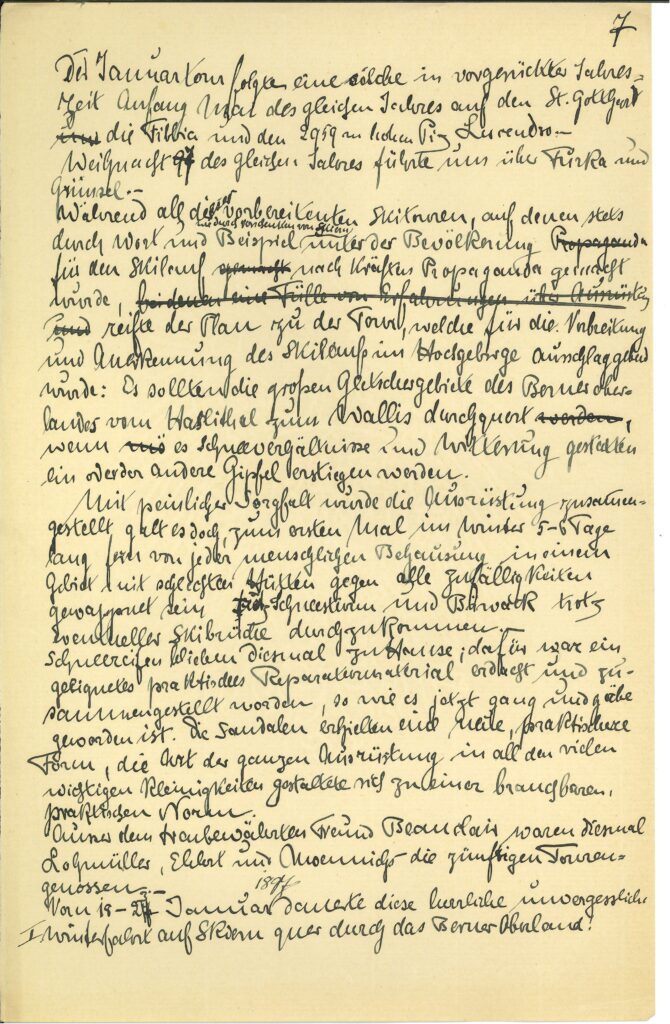 7
Der Januartour folgte eine solche in vorgerückter Jahres-
zeit Anfang Mai des gleichen Jahres auf den St. Gotthard
und die Fibbia und den 2959 m hohen Piz Lucendro.-
Weihnacht 97 des gleichen Jahres führte uns über Furka und
Grimsel.-
Während all dieser vorbereitenden Skitouren, auf denen stets
durch Wort und Beispiel und durch Verschenken von Skiern unter der Bevölkerung Propaganda
für den Skilauf gemacht nach Kräften Propaganda gemacht
wurde, bei denen eine Fülle von Erfahrungen über Ausrüstung
und reifte der Plan zu der Tour, welche für die Verbreitung
und Anerkennung des Skilaufs im Hochgebirge ausschlaggebend
wurde: Es sollten die großen Gletschergebiete des Berner Ober-
landes vom Haslithal zum Wallis durchquert werden,
wenn es Schneeverhältnisse und Witterung gestatten
ein oder der andere Gipfel erstiegen werden.
Mit peinlicher Sorgfalt wurde die Ausrüstung zusammen-
gestellt, galt es doch, zum ersten Mal im Winter 5-6 Tage
lang fern von jeder menschlichen Behausung in einem
Gebiet mit schlechten Hütten gegen alle Zufälligkeiten
gewappnet sein trotz Schneesturm und Biwack trotz
eventueller Skibrüche durchzukommen.-
Schneereifen blieben diesmal zu Hause; dafür war ein
geeignetes praktisches Reparaturmaterial erdacht und zu-
sammengestellt worden, so wie es jetzt gang und gäbe
geworden ist. Die Sandalen erhielten eine neue, praktischere
Form, die Art der ganzen Ausrüstung in all den vielen
wichtigen Kleinigkeiten gestaltete sich zu einer brauchbaren,
praktischen Norm.
Ausser dem treubewährten Freund Beauclair waren diesmal
Lohmüller, Ehlert und Moennichs die zünftigen Touren-
genossen.-
Vom 18-2 Januar 1897 dauerte diese herrliche unvergessliche
I Winterfahrt auf Skiern quer durch das Berner Oberland!